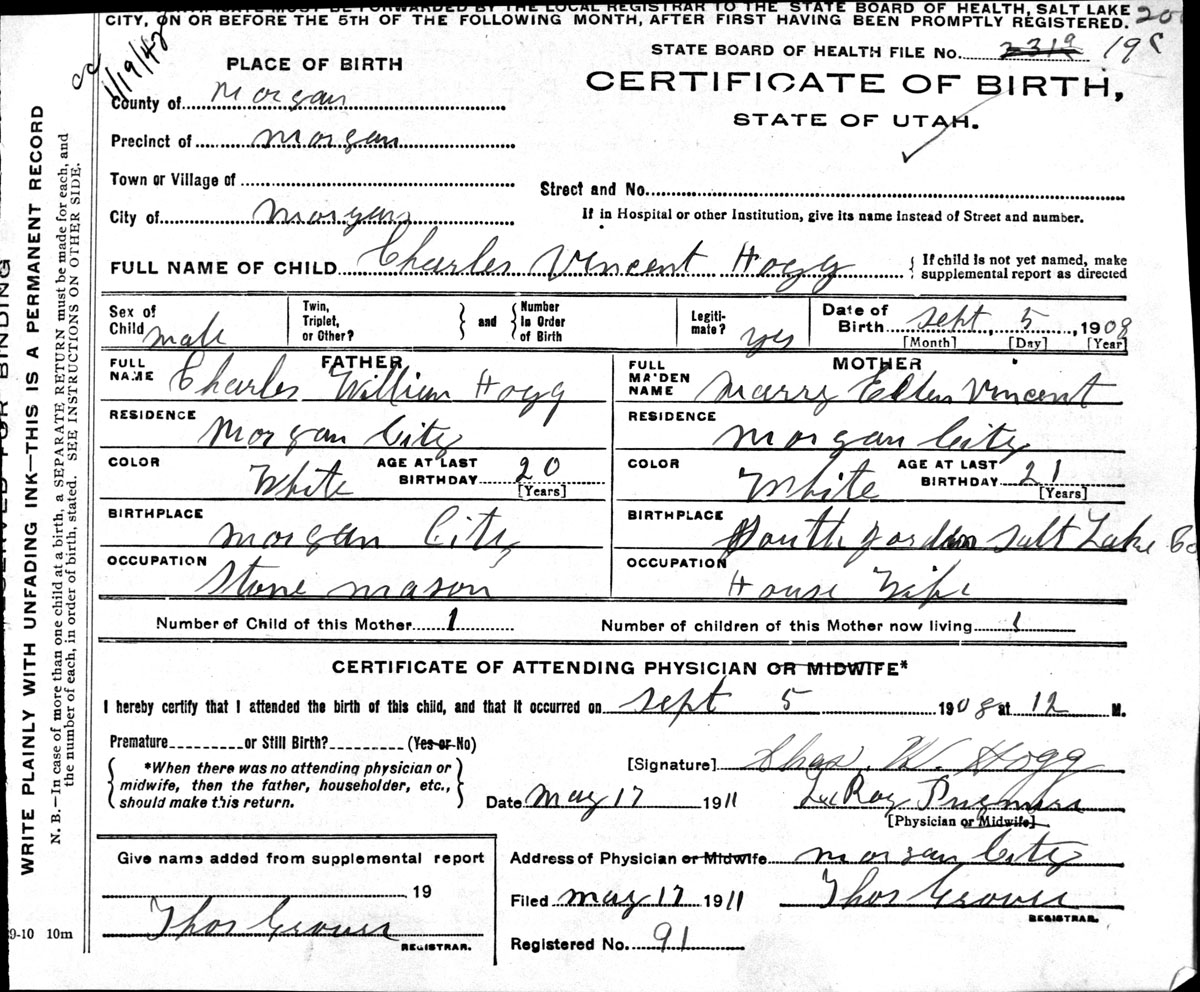 CERTIFICATE MUST BE FORWARDED BY THE LOCAL REGISTRAR TO THE STATE BOARD OF HEALTH, SALT LAKE
CITY, ON OR BEFORE THE 5TH OF THE FOLLOWING MONTH, AFTER FIRST HAVING BEEN PROMPTLY REGISTERED.
1/19/42
STATE BOARD OF HEALTH FILE No. 2319
PLACE OF BIRTH
CERTIFICATE OF BIRTH,
STATE OF UTAH.
County of Morgan
Precinct of Morgan
Town or Village of
Street and No.
City of Morgan
If in Hospital or other Institution, give its name instead of Street and number.
FULL NAME OF CHILD Charles Vincent Hogg { If child is not yet named, make supplemental report as directed
Sex of Child male
Twin, Triplet, or Other? } and { Number In Order of Birth
Legiti-mate? yes
Date of Birth Sept, 5, 1908
[Month] [Day] [Year]
FATHER
FULL NAME Charles William Hogg
RESIDENCE Morgan City
COLOR White AGE AT LAST BIRTHDAY 20
[Years]
BIRTHPLACE Morgan City
OCCUPATION Stone mason
MOTHER
FULL MAIDEN NAME Marry Ellen Vincent
RESIDENCE Morgan City
COLOR White AGE AT LAST BIRTHDAY 21
[Years]
BIRTHPLACE South Jordan Salt Lake Co
OCCUPATION House Wife
Number of Child of this Mother 1 Number of children of this Mother now living 1
CERTIFICATE OF ATTENDING PHYSICIAN OR MIDWIFE*
I hereby certify that I attended the birth of this child, and that it occurred on Sept 5 1908 at 12 M.
Premature or Still Birth? (Yes or No)
*When there was no attending physician or midwife, then the father, householder, etc., should make this return.
[Signature] Chas. W. Hogg
Date May 17 1911
[Physician or Midwife]
Give name added from supplemental report
19
Thos Grover
REGISTRAR.
Address of Physician or Midwife Morgan City
Filed May 17 1911 Thos Grover
REGISTRAR.
Registered No. 91
9-10 10m
WRITE PLAINLY WITH UNFADING INK—THIS IS A PERMANENT RECORD
N. B.—In case of more than one child at a birth, a SEPARATE RETURN must be made for each, and
the number of each, in order of birth, stated. SEE INSTRUCTIONS ON OTHER SIDE.